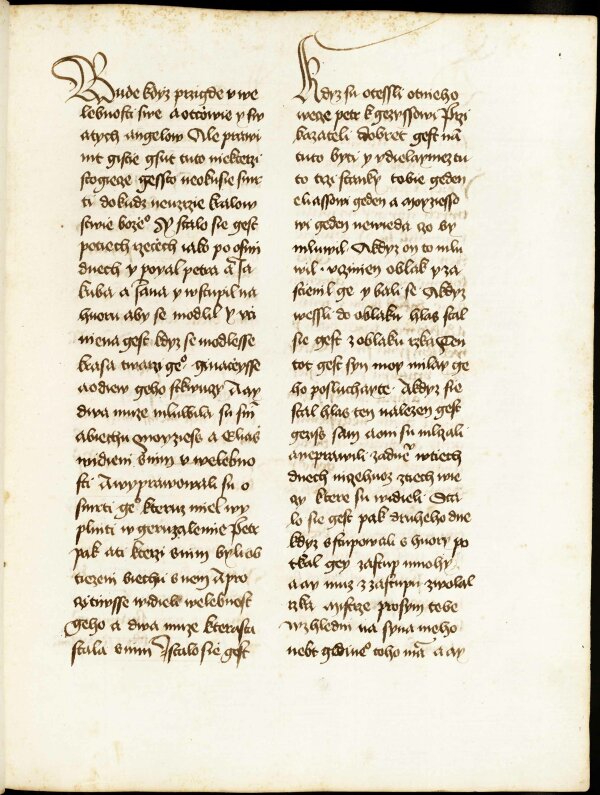 Bude kdyz przigde v we
lebnosti swe a otcowie y sw
atych angelow Ale prawi
mt gistie gsut tuto niekterzi
stogieze gessto neokusie smr
ti dokudz neuzrzie kralow
stwie bozeº Y stalo sie gest
potiech rzecech iako po osmi
dnech y poyal petra a Ja
kuba a Jana y wstupil na
huoru aby se modlil Y vči
niena gest kdyz se modlesse
krasa twarzi geº ginaceysse
a odiew geho stkwuczy A ay
dwa muze mluwila su snī
a biechu moyziess a Elias
widieni snim v welebno
sti A wyprawowali su o
smrti geº kteruz miel wy
plniti w geruzalemie Petr
pak a ti kterzi snim byli ob
tiezeni biechu snem A pro
czitiwsse widieli welebnost
geho a dwa muze kterasta
stala snim J stalo sie gest
Kdyz su otessli otnieho
wece petr k gezyssowi Przi
kazateli dobret gest nā
tuto byti y vdielaymez tu
to trzi stanky tobie geden
eliassowi geden a moyziesso
wi geden newieda czo by
mluwil A kdyz on to mlu
wil vczinien oblak y za
stienil ge y bali se A kdyz
wessli do oblaku hlas stal
sie gest z oblaku rzka Ten
tot gest syn moy milay ge
ho posluchayte A kdyz sie
stal hlas ten nalezen gest
gezis sam a oni su mlczali
a neprawili zadneº w tiech
dnech nizehuoz z tiech wie
czy ktere su widieli Sta
lo sie gest pak druheho dne
kdyz s stupowali s huory po
tkal gey zastup mnohy
a ay muz z zastupu zwolal
rzka mistrze prosym tebe
wzhledni na syna meho
nebt gedineº toho mā a ay